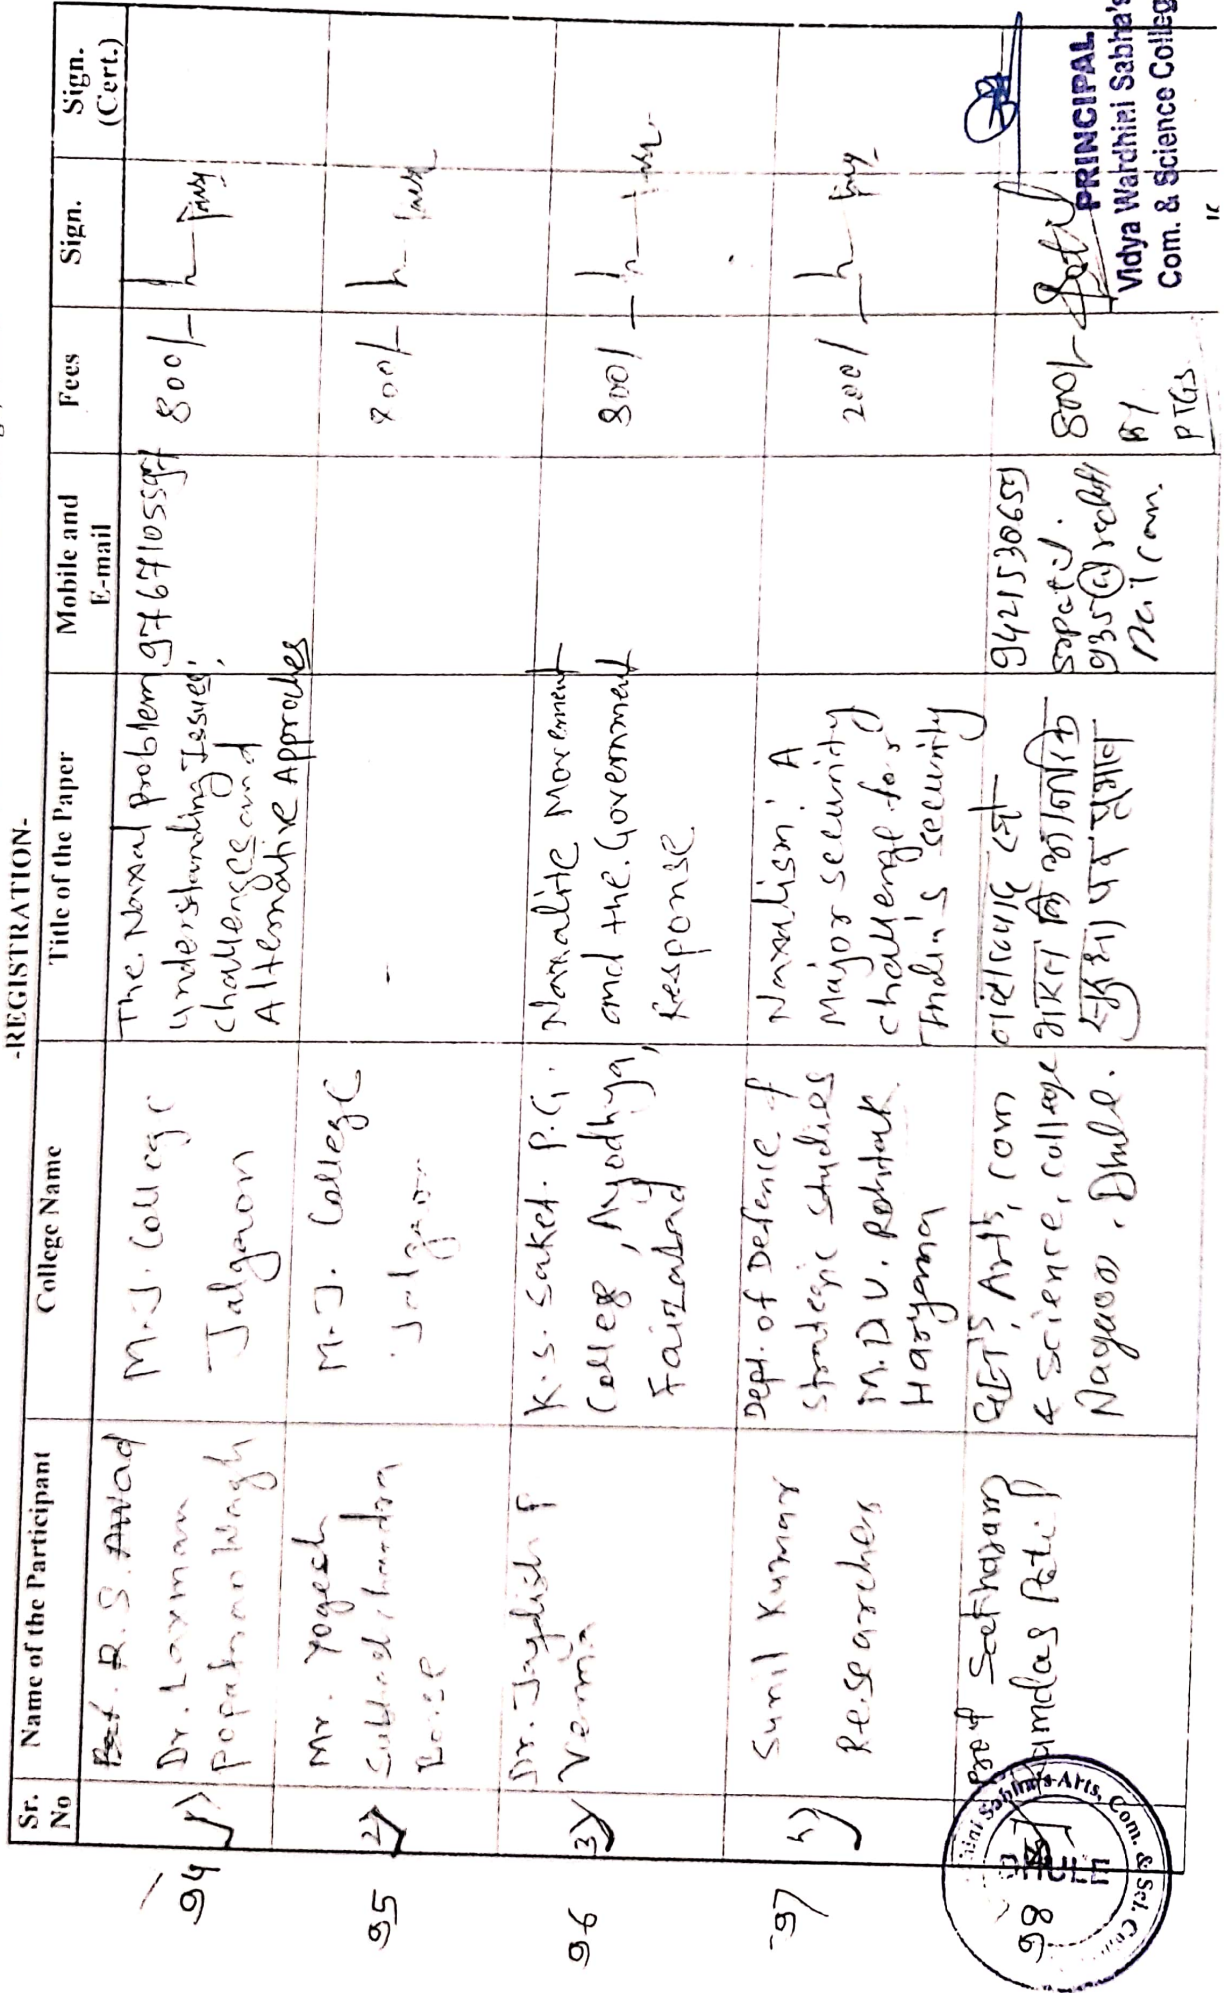 -REGISTRATION-
Sr. No
Name of the Participant
College Name
Title of the Paper
Mobile and E-mail
Fees
Sign.
Sign. (Cert.)
94
1)
R. S. Awad
Dr. Laxman
Popatrao Wagh
M. J. College
Jalgaon
The Naxal problem
Understanding Issues,
challenges and
Alternative Approches
9767105597
800/-
95
2)
Mr. Yogesh
Subhashchandra
Borse
M. J. College
Jalgaon
-
800/-
96
3)
Dr. Jagdish P
Verma
K. S. Saket. P.G.
College, Ayodhya,
Faizabad
Naxalite Movement
and the Government
Response
800/
97
4)
Sunil Kumar
Researcher
Dept. of Defence &
Strategic Studies
M. D. U. Rohtak
Haryana
Naxalism: A
Major security
challenge for
India's security
200/
98
Prof Seetharam
Ramdas Patil
Arts, Com
& Science, College
Nagaon, Dhule.
नक्षलवाद
9421530659
sspatil.
935@rediff
mail com.
800/-
By
RTGS
PRINCIPAL
Vidya Wardhini Sabha's
Com. & Science Colleg
ini Sabha's Arts, Com. & Sci. Co